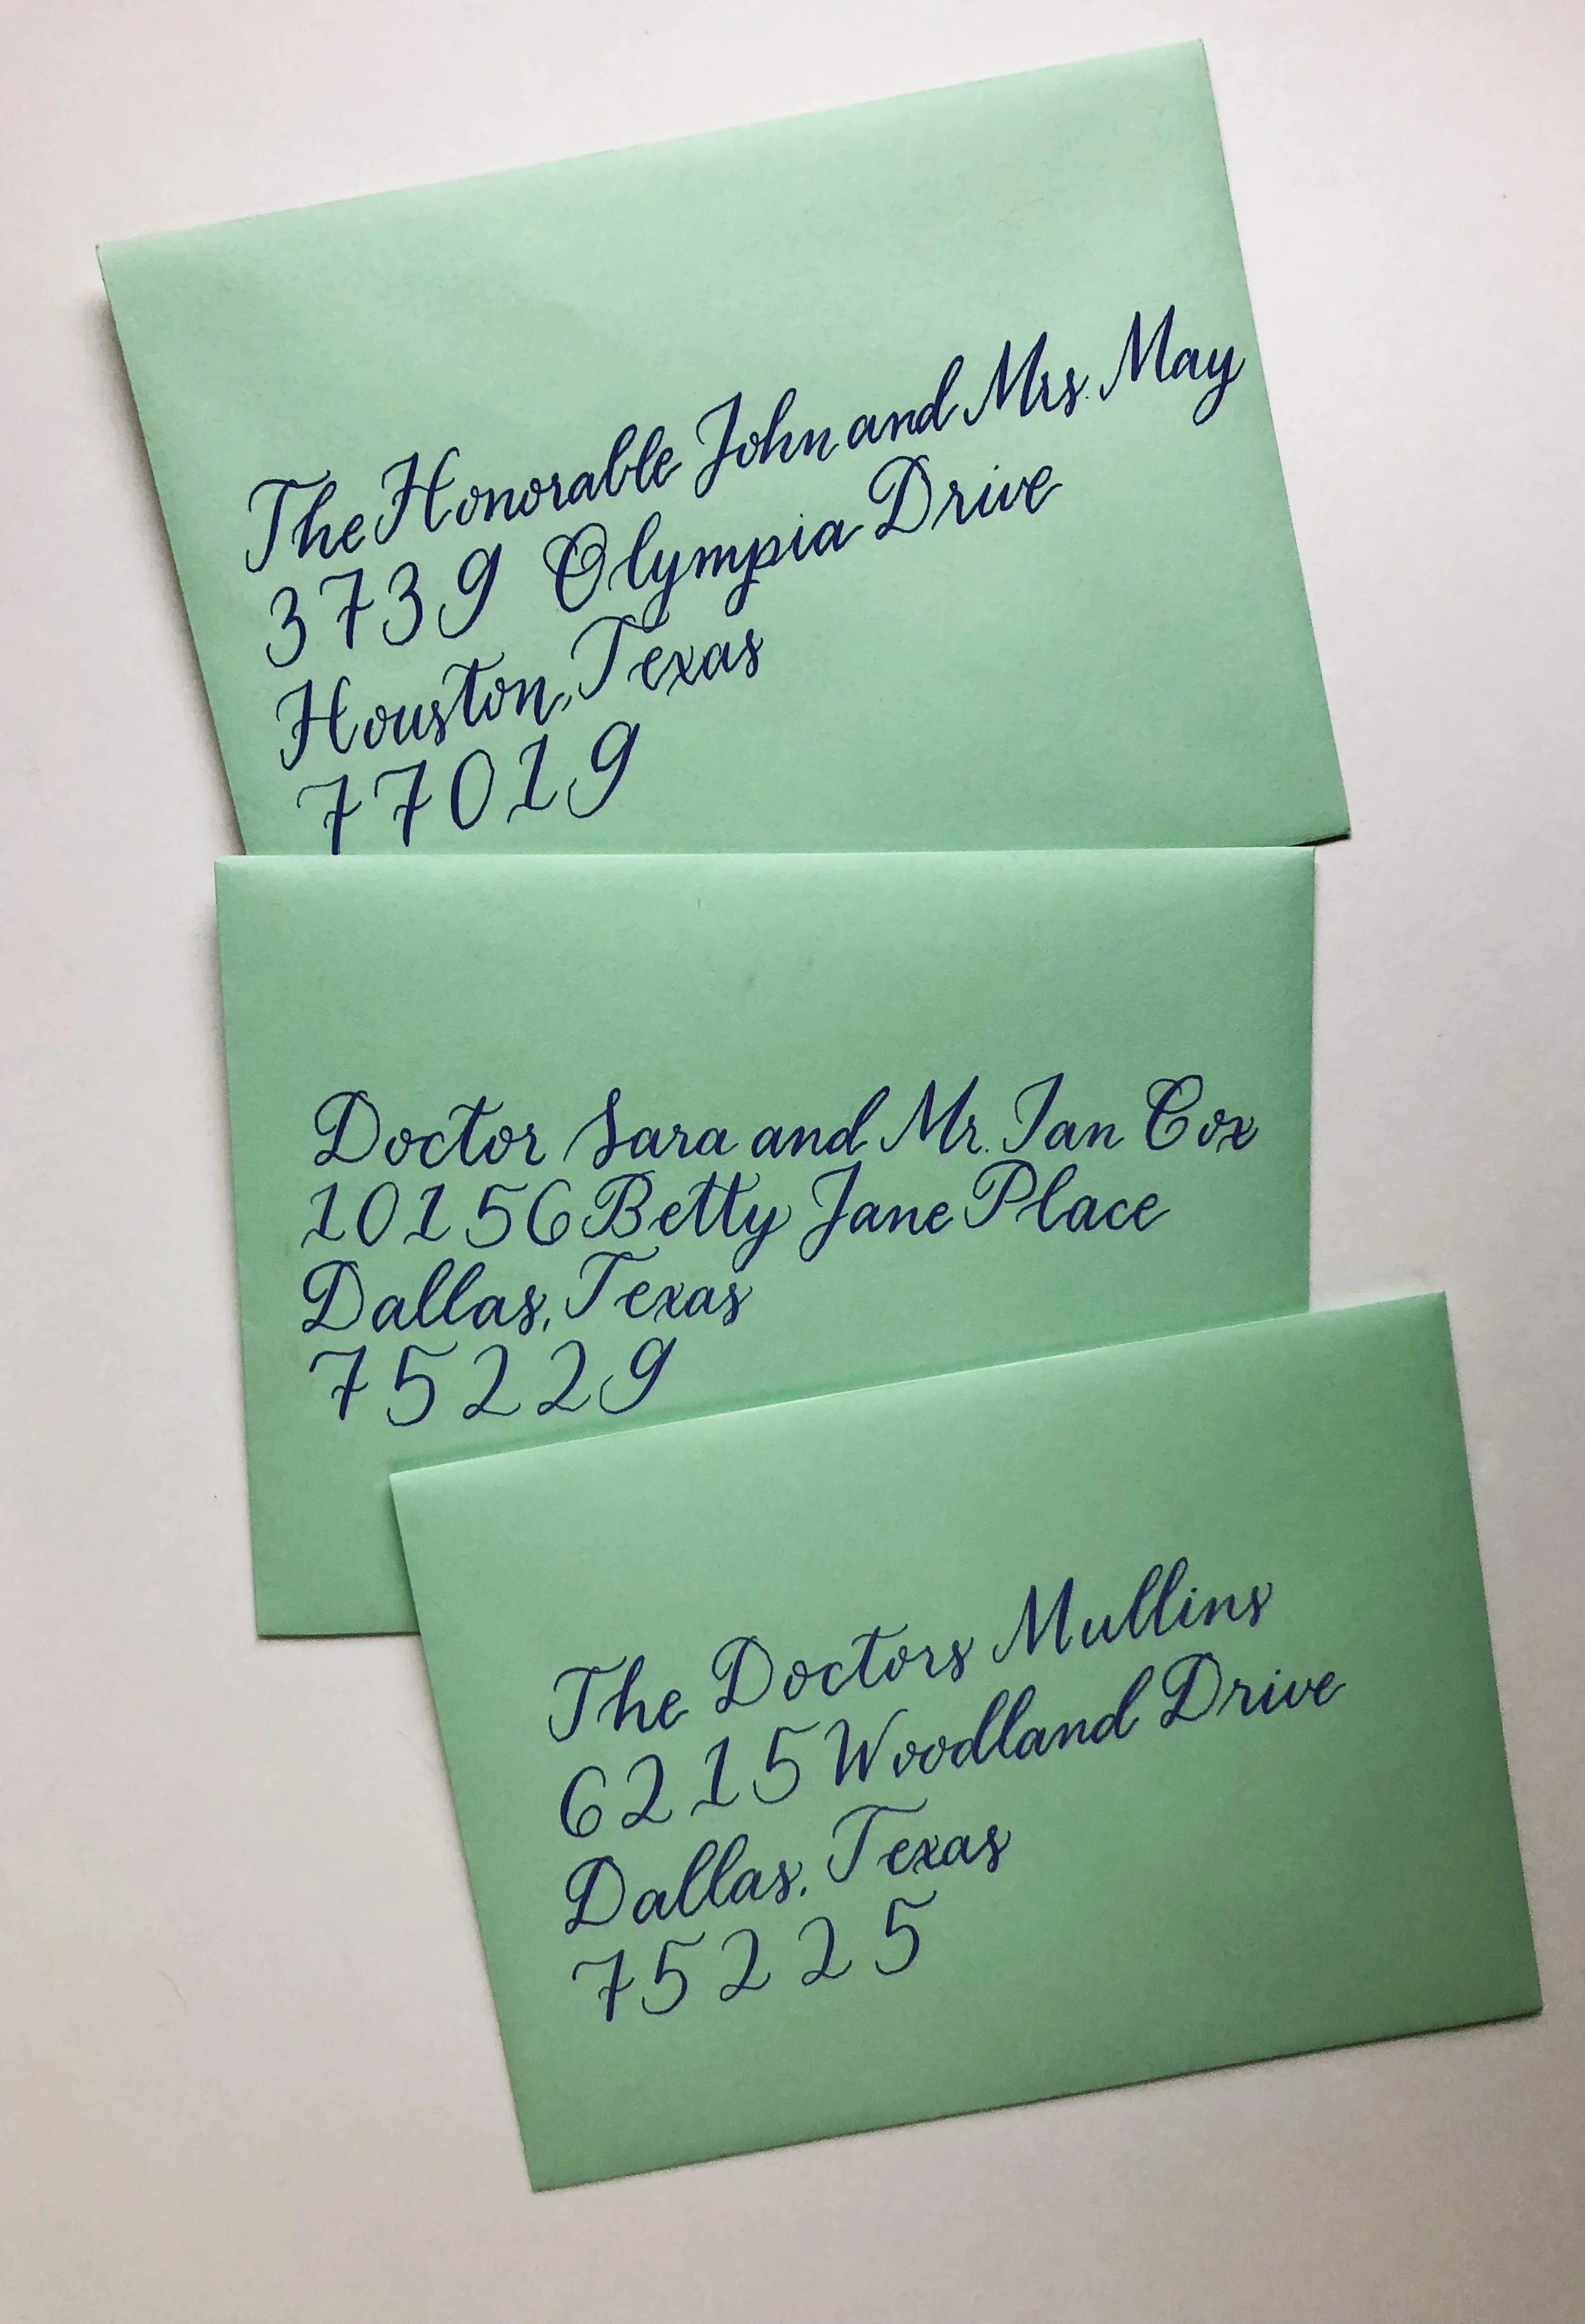 The Honorable John and Mrs. May
3739 Olympia Drive
Houston, Texas
77019
Doctor Sara and Mr. Ian Cox
10156 Betty Jane Place
Dallas, Texas
75229
The Doctors Mullins
6215 Woodland Drive
Dallas, Texas
75225